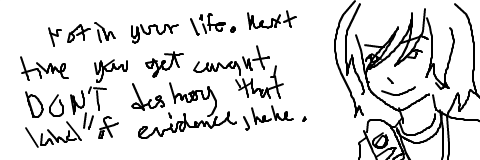 Not in your life. Next
time you get caught,
DON'T destroy "that
kind" of evidence, hehe.